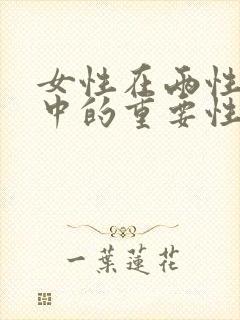 女性在兩性
中的重要性
一葉蓮花